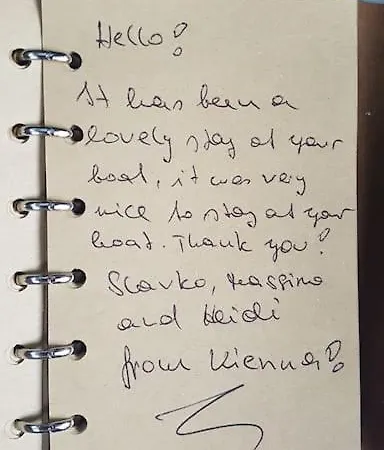 Hello!
It has been a
lovely stay at your
boat, it was very
nice to stay at your
boat. Thank you!
Slavko, Massimo
and Heidi
from Vienna!